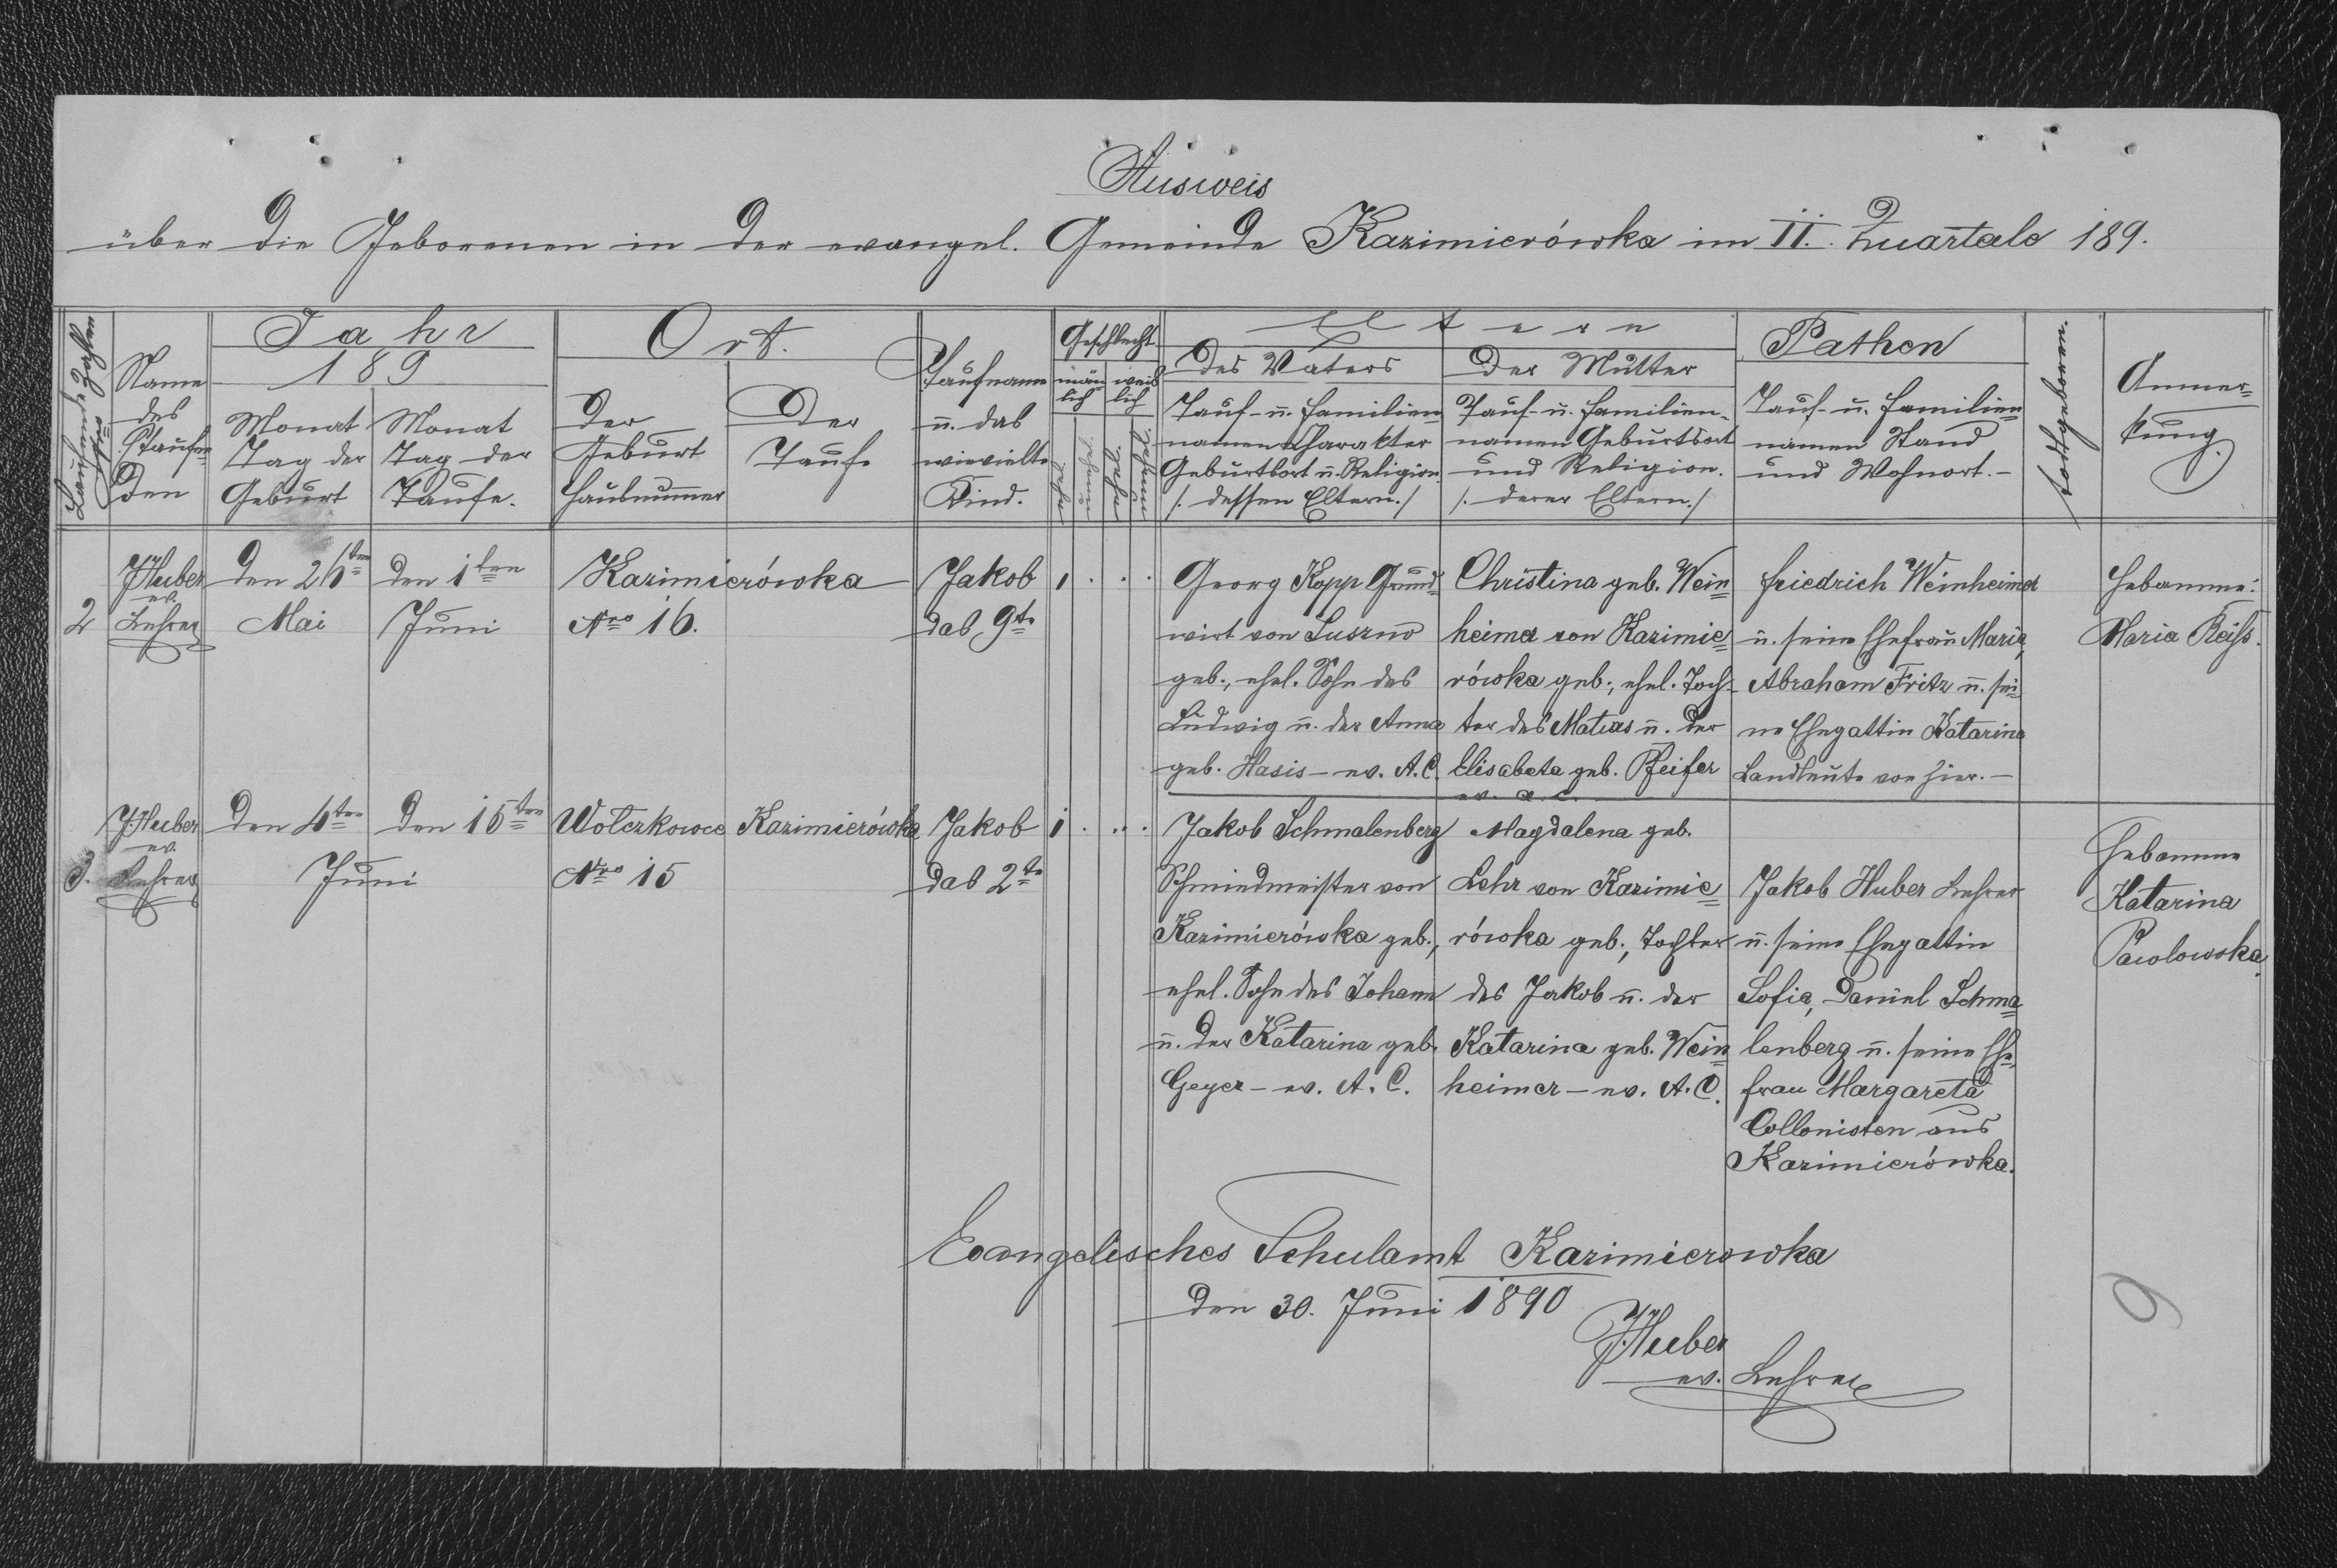 Ausweis
über die Geborenen in der evangel. Gemeinde Kazimierówka im II. Quartale 189.
Laufende Zahlen
Name des Taufenden
Jahr
189
Monat Tag der Geburt
Monat Tag der Taufe.
Ort.
Der Geburt Hausnummer
Der Taufe
Taufname u. das wievielte Kind.
Geschlecht
män=lich
weib lich
Eltern
des Vaters
Tauf- u. Familien=
namen Charakter
Geburtsort u. Religion.
/. dessen Eltern./
der Mutter
Tauf- u. Familien-
namen Geburtsort
und Religion.
/. derer Eltern./
Pathen
Tauf- u. Familien=
namen Stand
und Wohnort.-
todtgeboren.
Anmer=
kung.
2
JHuber
ev.
Lehrer
den 26ten
Mai
den 1ten
Juni
Kazimierówka
Nro 16.
Jakob
das 9te
1 . . .
Georg Kopp Grund=
wirt von Suszno
geb., ehel. Sohn des
Ludwig u. der Anna
geb. Hasis - ev. A.C.
Christina geb. Wein=
heimer von Kazimie=
rówka geb., ehel. Toch-
ter des Matias u. der
Elisabeta geb. Pfeifer
ev. a. c.
Friedrich Weinheimer
u. seine Ehefrau Maria,
Abraham Fritz u. sei=
ne Ehegattin Katarina
Landleute von hier.-
Hebamme:
Maria Reiss.
3.
JHuber
ev.
Lehrer
den 4ten
den 15ten
Juni
Wolczkowce
Nro 15
Kazimierówka
Jakob
das 2te
1 . . .
Jakob Schmalenberg
Schmiedmeister von
Kazimierówka geb.,
ehel. Sohn des Johann
u. der Katarina geb.
Geyer - ev. A. C.
Magdalena geb.
Lehr von Kazimie=
rówka geb., Tochter
des Jakob u. der
Katarina geb. Wein=
heimer - ev. A. C.
Jakob Huber Lehrer
u. seine Ehegattin
Sofia, Daniel Schma=
lenberg u. seine Ehe=
frau Margareta
Collonisten aus
Kazimierówka.
Hebamme
Katarina
Pawlowska.
Evangelisches Schulamt Kazimierowka
den 30. Juni 1890
JHuber
ev. Lehrer
9